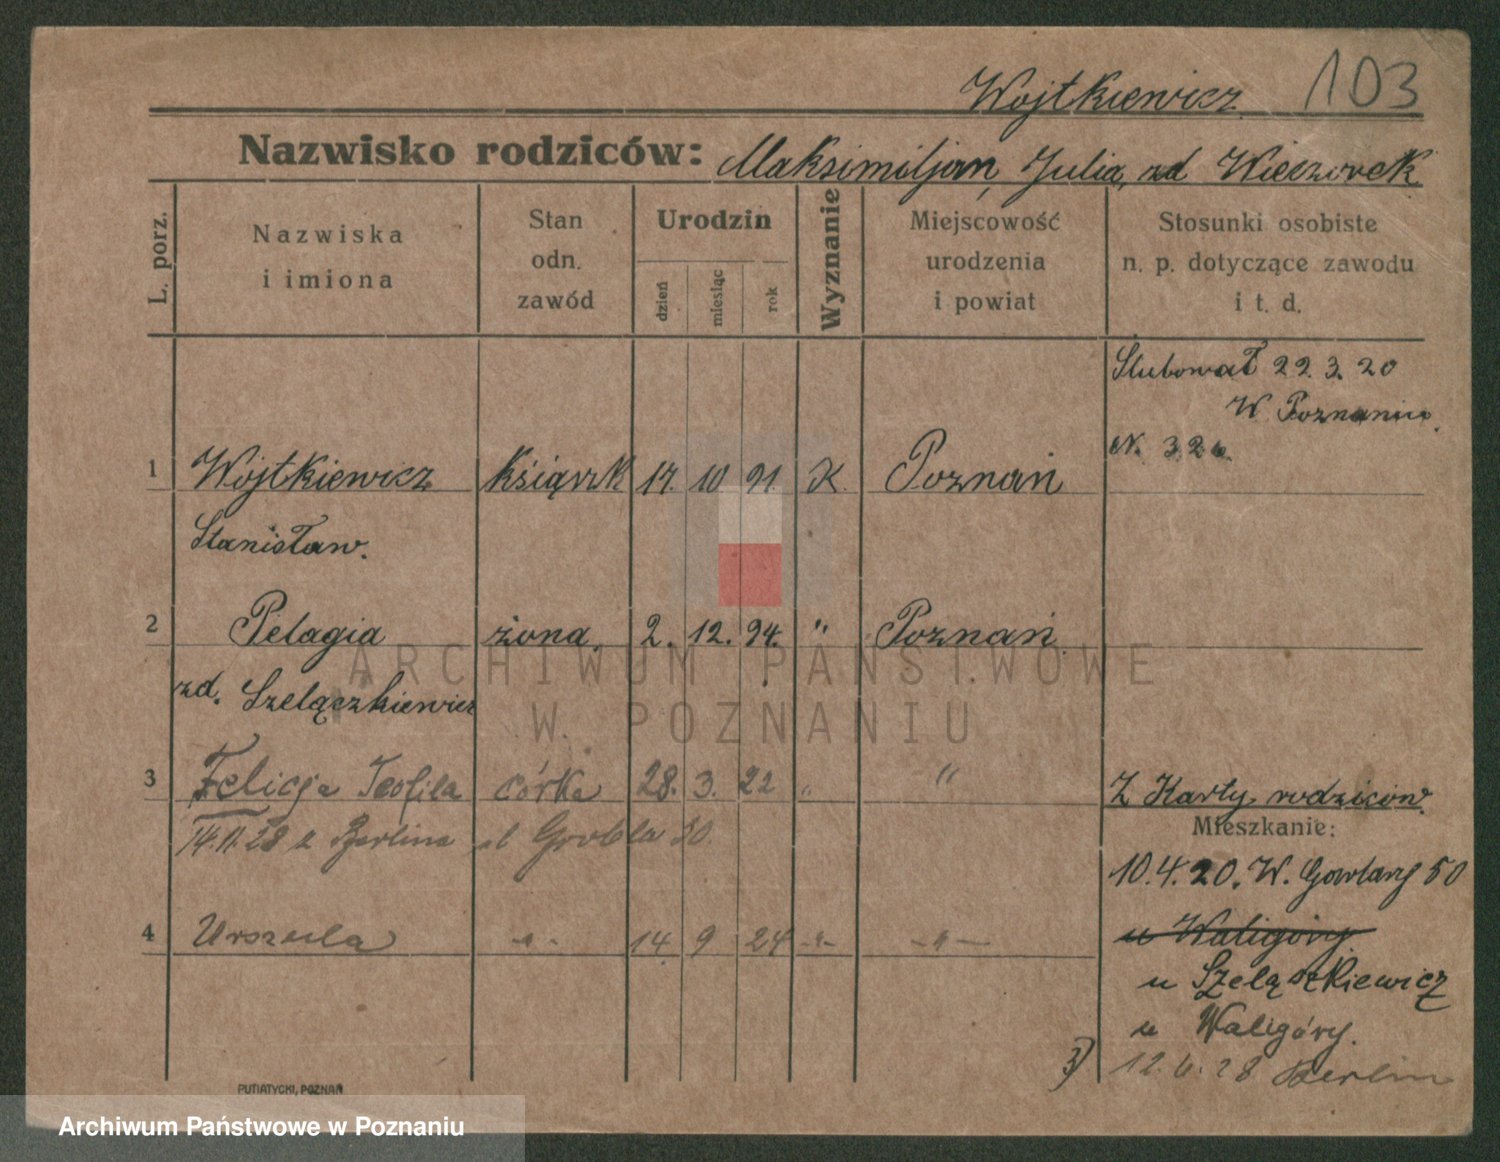 Wojtkiewicz 103
Nazwisko rodziców: Maksimiljan, Julia, zd Wieczorek
L. porz.
Nazwiska
i imiona
Stan
odn.
zawód
Urodzin
dzień
miesiąc
rok
Wyznanie
Miejscowość
urodzenia
i powiat
Stosunki osobiste
n. p. dotyczące zawodu
i t. d.
Slubował 22.3.20
W Poznaniu.
N. 326.
1 Wojtkiewicz 10 91. K. Poznań
Stanisław.
2 Pelagia żona. 2. 12. 94. " Poznań
zd. Szelączkiewicz
ARCHIWUM PAŃSTWOWE
W POZNANIU
3 Felicja Teofila córka 28. 3. 22 " "
14.11.28 z Berlina Grobla 30.
Z Karty rodziców
Mieszkanie:
10.4.20. W. Gowlary 50
4 Urszula -"- 14 9 24 -"- -"-
u Waligóry
u Szelączkiewicz
u Waligóry.
3) 12.6.28 Berlin
PUTIATYCKI, POZNAŃ
Archiwum Państwowe w Poznaniu